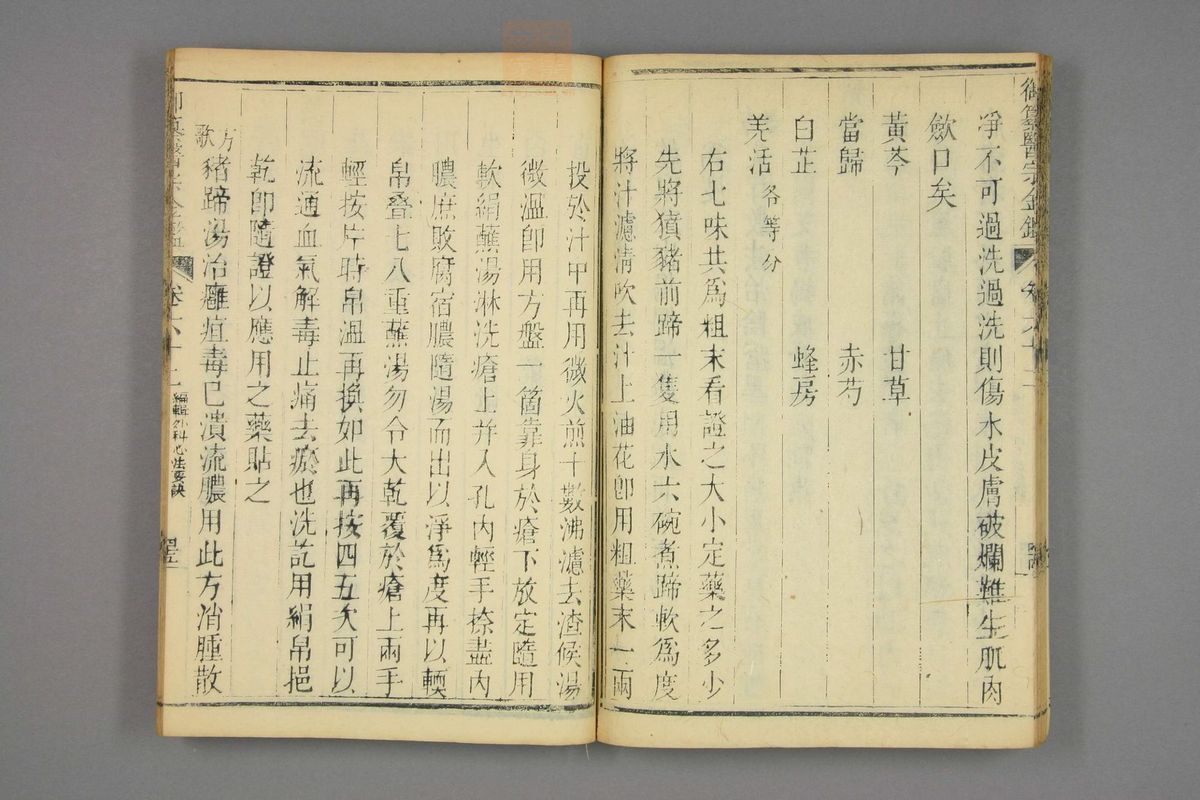 御纂醫宗金鑑 卷六十二
淨不可過洗過洗則傷水皮膚破爛難生肌肉
歛口矣
黃芩 甘草
當歸 赤芍
白芷 蜂房
羌活各等分
右七味共爲粗末看證之大小定藥之多少
先將獖豬前蹄一隻用水六碗煮蹄軟爲度
將汁濾清吹去汁上油花卽用粗藥末一兩
投於汁中再用微火煎十數沸濾去渣候湯
微溫卽用方盤一箇靠身於瘡下放定隨用
軟絹蘸湯淋洗瘡上并入孔內輕手捺盡內
膿庶敗腐宿膿隨湯而出以淨爲度再以輭
帛叠七八重蘸湯勿令大乾覆於瘡上兩手
輕按片時帛溫再換如此再按四五次可以
流通血氣解毒止痛去瘀也洗訖用絹帛挹
乾卽隨證以應用之藥貼之
方歌 豬蹄湯治癰疽毒已潰流膿用此方消腫散
卷六十二 編輯外科心法要訣